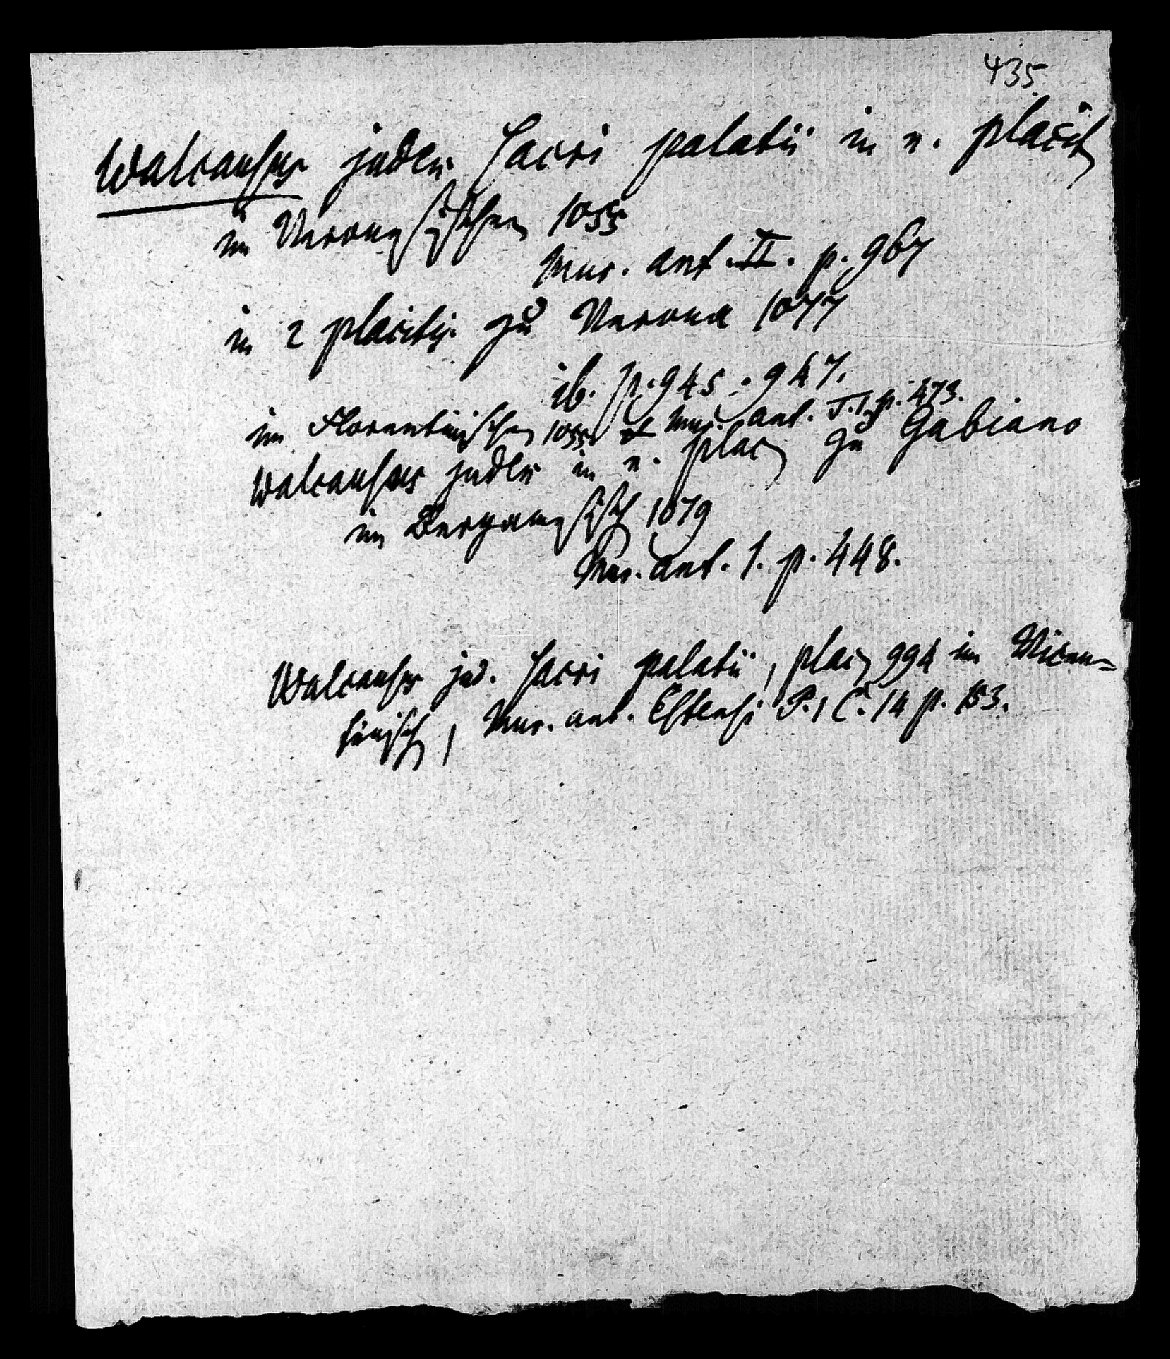 435.
Walcausus judex sacri palatii in e. placit
im Veronesischen 1055
Mur. ant. II. p. 967
in 2 placitis zu Verona 1077
ib. p. 945. 947.
im Florentinischen 1055 et Mur. ant. T. I. p. 473.
Walcausus judex in e. plac zu Gabiano
im Bergamesisch 1079
Mur. ant. 1. p. 448.
Walcausus jud. sacri palatii, plac 994 im Vicen=
tinisch, Mur. ant. Estensi P. 1 C. 14 p. 153.